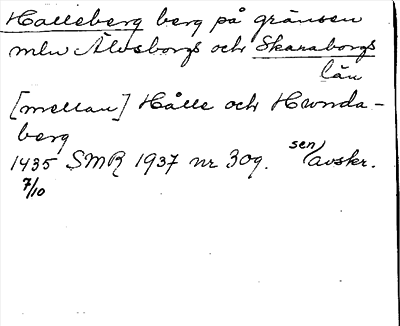 Halleberg berg på gränsen
mln Älvsborgs och Skaraborgs
län
[mellan] Hålle och Hwnda-
berg
1435 SMR 1937 nr 309. sen avskr.
7/10